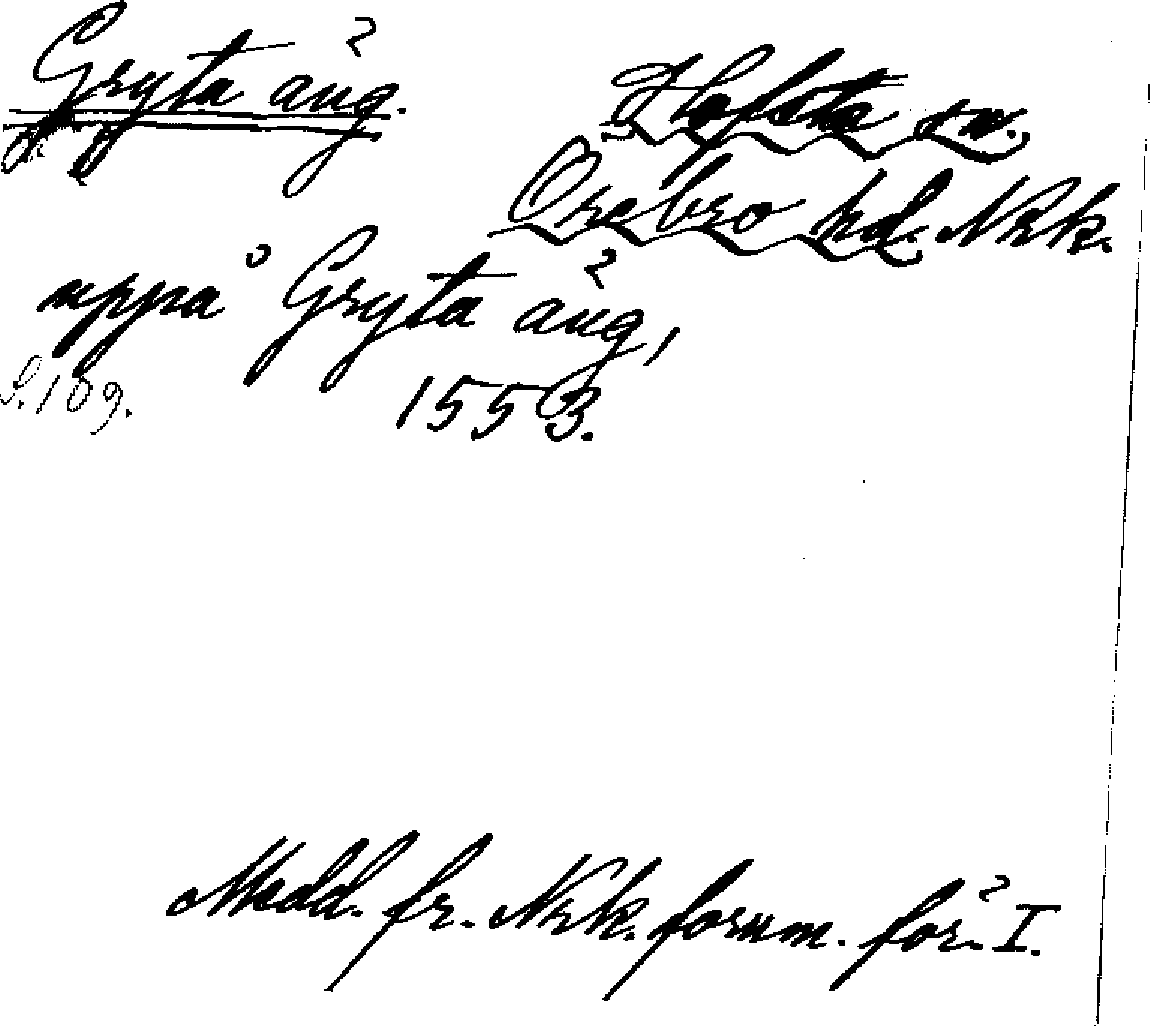 Gryta äng.
Hofsta sn.
Örebro hd. Nrk.
uppå Gryta äng,
S. 109. 1553.
Medd. fr. Nrk. fornm. för. I.